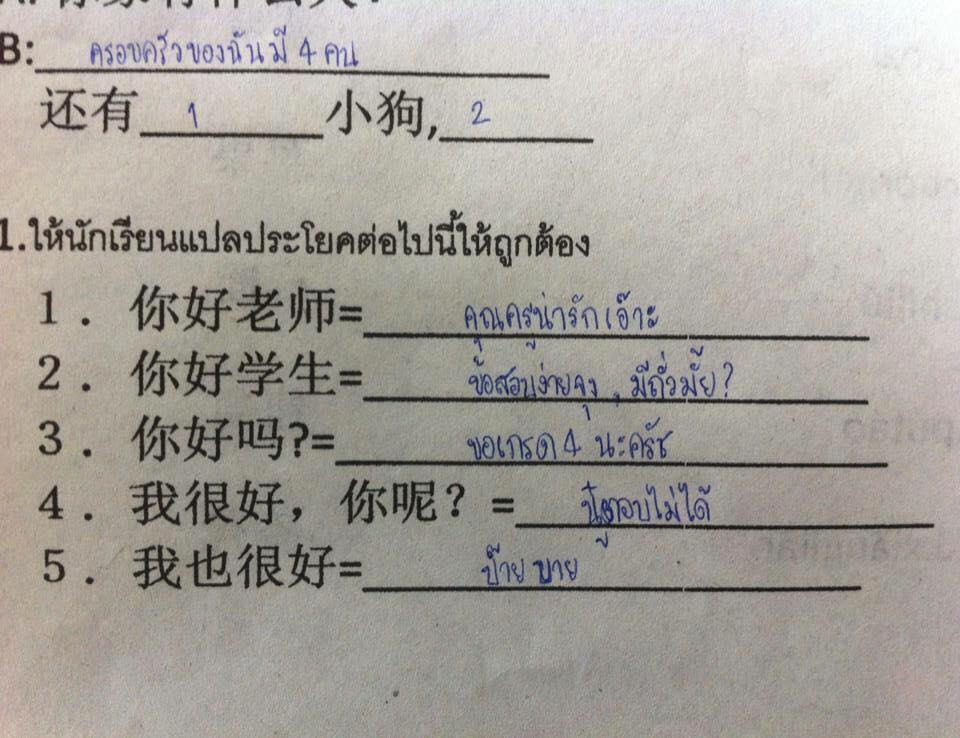 B: ครอบครัวของฉันมี 4 คน
还有 1 小狗, 2
1.ให้นักเรียนแปลประโยคต่อไปนี้ให้ถูกต้อง
1. 你好老师= คุณครูน่ารักเอ๊าะ
2. 你好学生= ข้อสอบง่ายจุง , มีถั่วมั้ย?
3. 你好吗?= ขอเกรด 4 นะครัช
4. 我很好，你呢？= นู๋ตอบไม่ได้
5. 我也很好= บ๊าย บาย